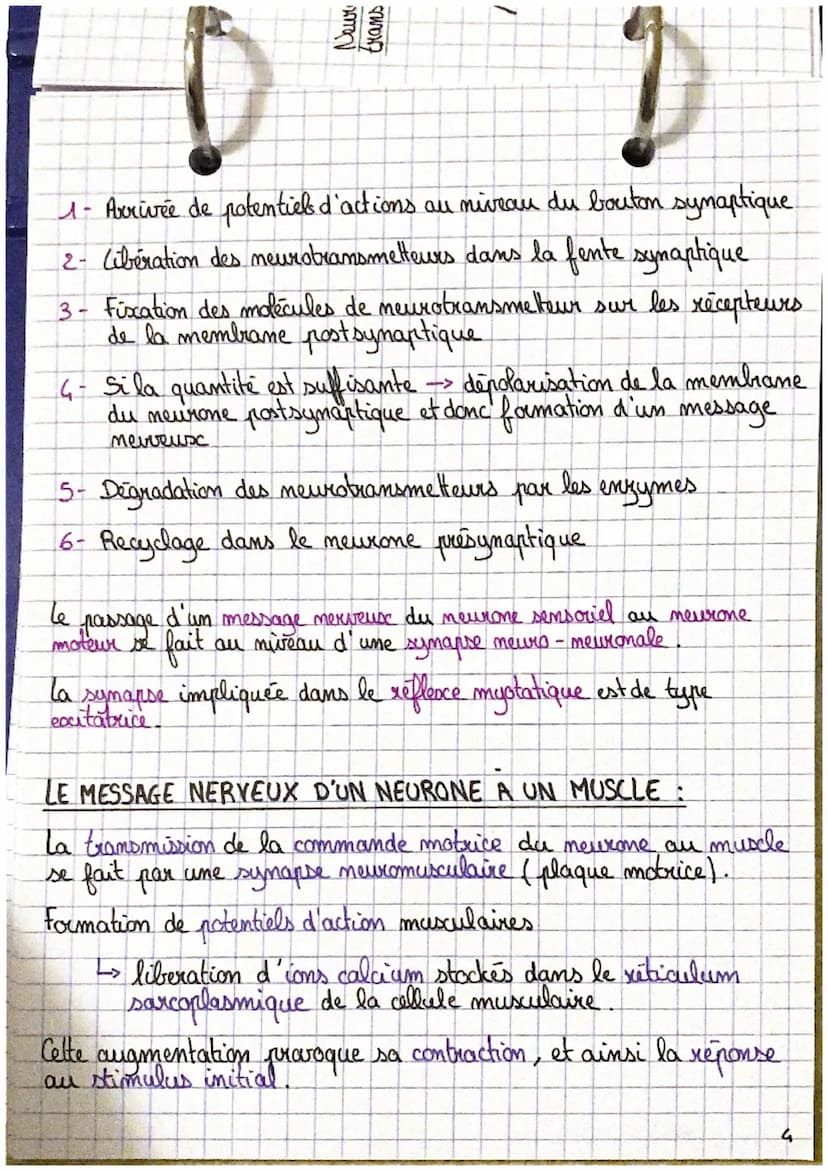 1- Arrivée de potentiels d'actions au niveau du bouton synaptique
2- Libération des neurotransmetteurs dans la fente synaptique
3- Fixation des molécules de neurotransmetteur sur les récepteurs
de la membrane postsynaptique
4- Si la quantité est suffisante → dépolarisation de la membrane
du neurone postsynaptique et donc formation d'un message
nerveux
5- Dégradation des neurotransmetteurs par les enzymes
6- Recyclage dans le neurone présynaptique
Le passage d'un message nerveux du neurone sensoriel au neurone
moteur se fait au niveau d'une synapse neuro-neuronale.
La synapse impliquée dans le réflexe myotatique est de type
excitatrice.
LE MESSAGE NERVEUX D'UN NEURONE À UN MUSCLE :
La transmission de la commande motrice du neurone au muscle
se fait par une synapse neuromusculaire (plaque motrice).
Formation de potentiels d'action musculaires
↳ liberation d'ions calcium stockés dans le réticulum
sarcoplasmique de la cellule musculaire.
Cette augmentation provoque sa contraction, et ainsi la réponse
au stimulus initial.
4